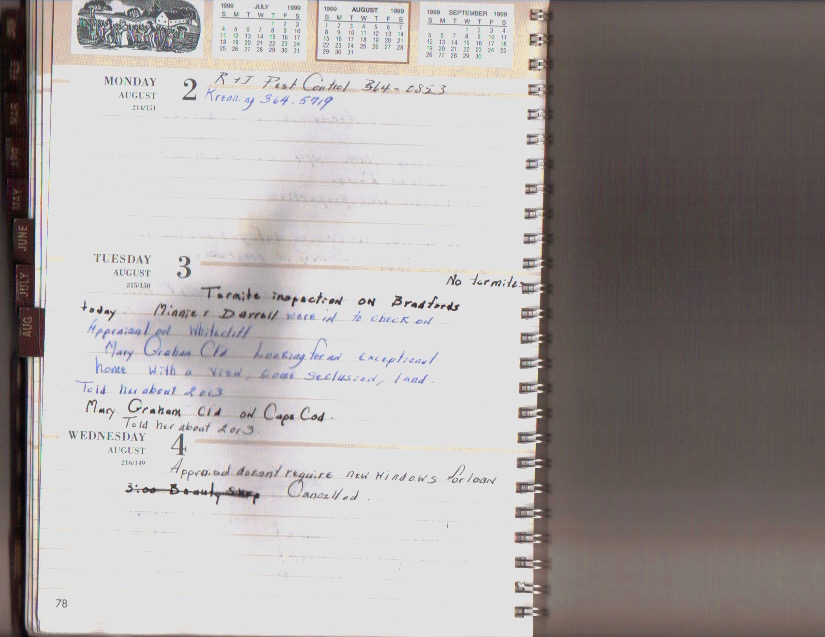 1999 JULY 1999
S M T W T F S
1 2 3
4 5 6 7 8 9 10
11 12 13 14 15 16 17
18 19 20 21 22 23 24
25 26 27 28 29 30 31
1999 AUGUST 1999
S M T W T F S
1 2 3 4 5 6 7
8 9 10 11 12 13 14
15 16 17 18 19 20 21
22 23 24 25 26 27 28
29 30 31
1999 SEPTEMBER 1999
S M T W T F S
1 2 3 4
5 6 7 8 9 10 11
12 13 14 15 16 17 18
19 20 21 22 23 24 25
26 27 28 29 30
MAR
APR
MAY
JUNE
JULY
AUG
MONDAY 2 R & J Pest Control 364-0853
AUGUST Krenning 364-5719
214/151
TUESDAY 3
AUGUST
215/150
No termites
Termite inspection on Bradfords
today Minnie & Darrell were in to check on
Appraisal on Whitecliff
Mary Graham Cld Looking for an exceptional
home with a view, some seclusion, land.
Told her about 2 or 3
Mary Graham Cld on Cape Cod.
Told her about 2 or 3.
WEDNESDAY 4
AUGUST
216/149
Appraisal doesnt require new windows for loan
3:00 Beauty Shop Cancelled.
78